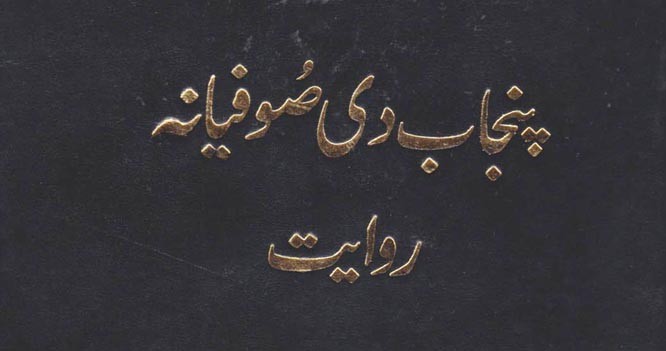 پنجاب دی صُوفیانہ
روایت